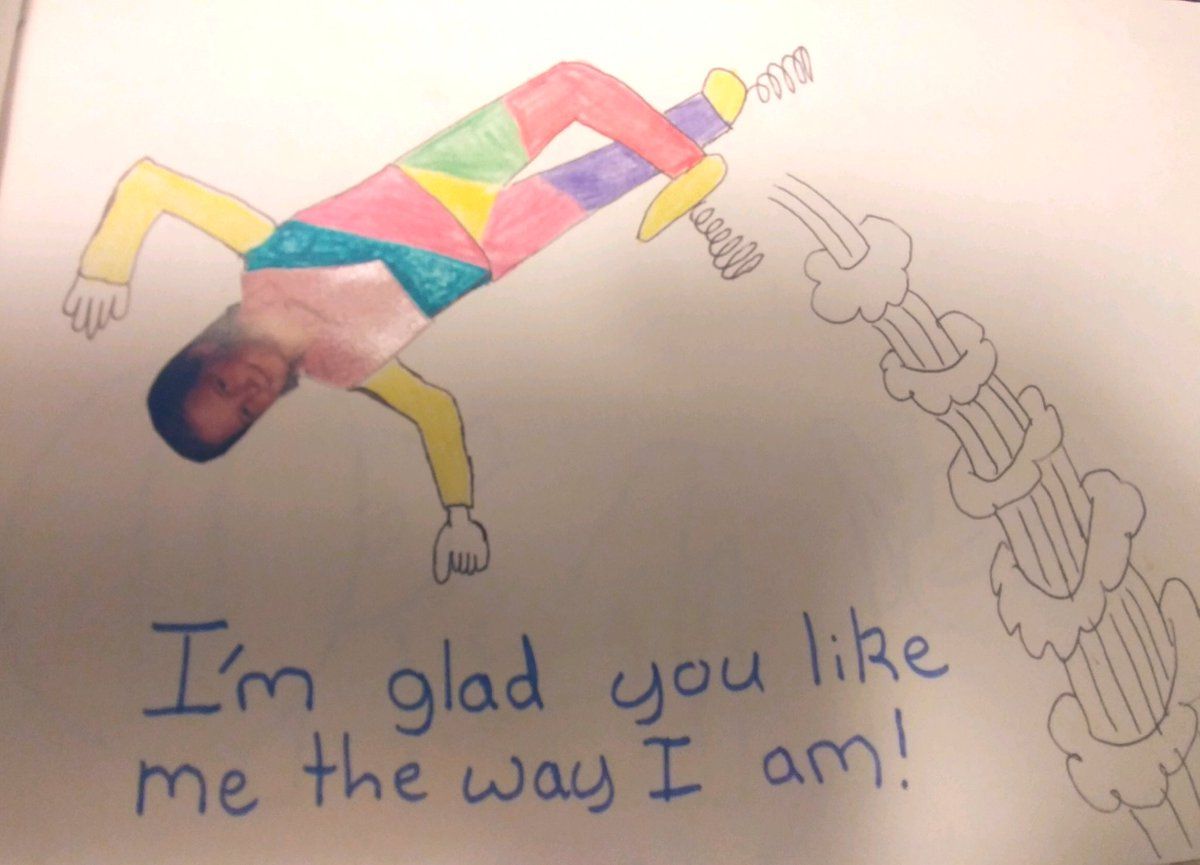 I'm glad you like
me the way I am!